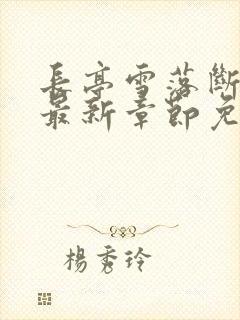 長亭雪落斷
最新章節免
楊秀玲